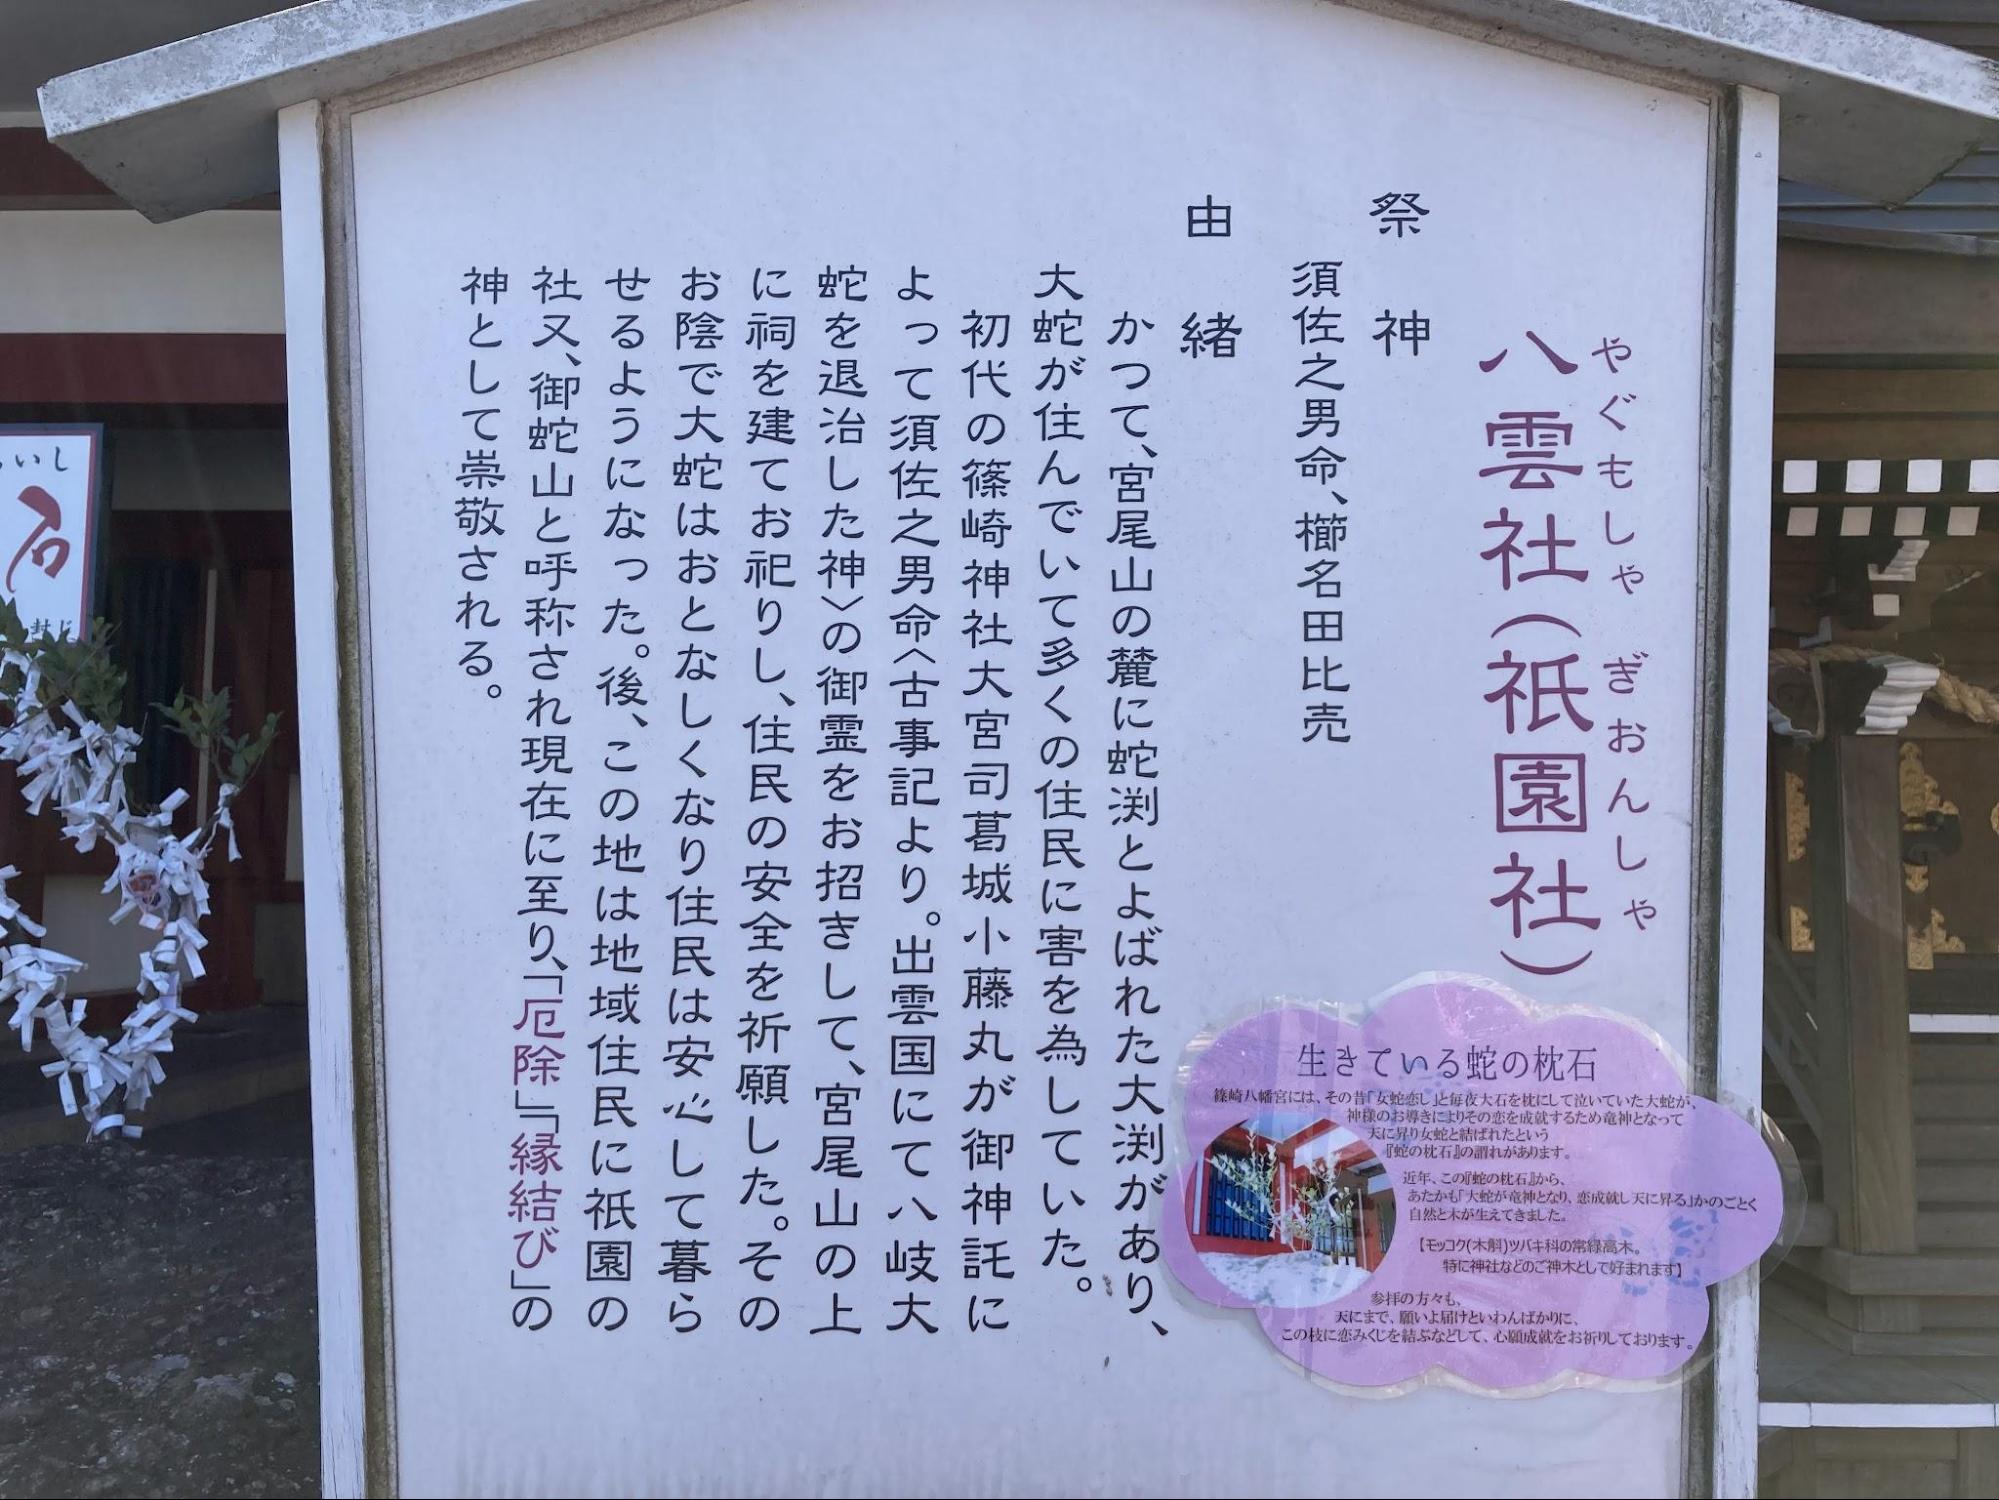 八雲社(祇園社)
やぐもしゃ ぎおんしゃ
祭神
須佐之男命、櫛名田比売
由緒
かつて、宮尾山の麓に蛇渕とよばれた大渕があり、
大蛇が住んでいて多くの住民に害を為していた。
初代の篠崎神社大宮司葛城小藤丸が御神託に
よって須佐之男命〈古事記より。出雲国にて八岐大
蛇を退治した神〉の御霊をお招きして、宮尾山の上
に祠を建てお祀りし、住民の安全を祈願した。その
お陰で大蛇はおとなしくなり住民は安心して暮ら
せるようになった。後、この地は地域住民に祇園の
社又、御蛇山と呼称され現在に至り、「厄除」「縁結び」の
神として崇敬される。
生きている蛇の枕石
篠崎八幡宮には、その昔「女蛇恋し」と毎夜大石を枕にして泣いていた大蛇が、
神様のお導きによりその恋を成就するため竜神となって
天に昇り女蛇と結ばれたという
『蛇の枕石』の謂れがあります。
近年、この『蛇の枕石』から、
あたかも「大蛇が竜神となり、恋成就し天に昇る」かのごとく
自然と木が生えてきました。
【モッコク(木斛)ツバキ科の常緑高木。
特に神社などのご神木として好まれます】
参拝の方々も、
天にまで、願いよ届けといわんばかりに、
この枝に恋みくじを結ぶなどして、心願成就をお祈りしております。
いし
石
封じ